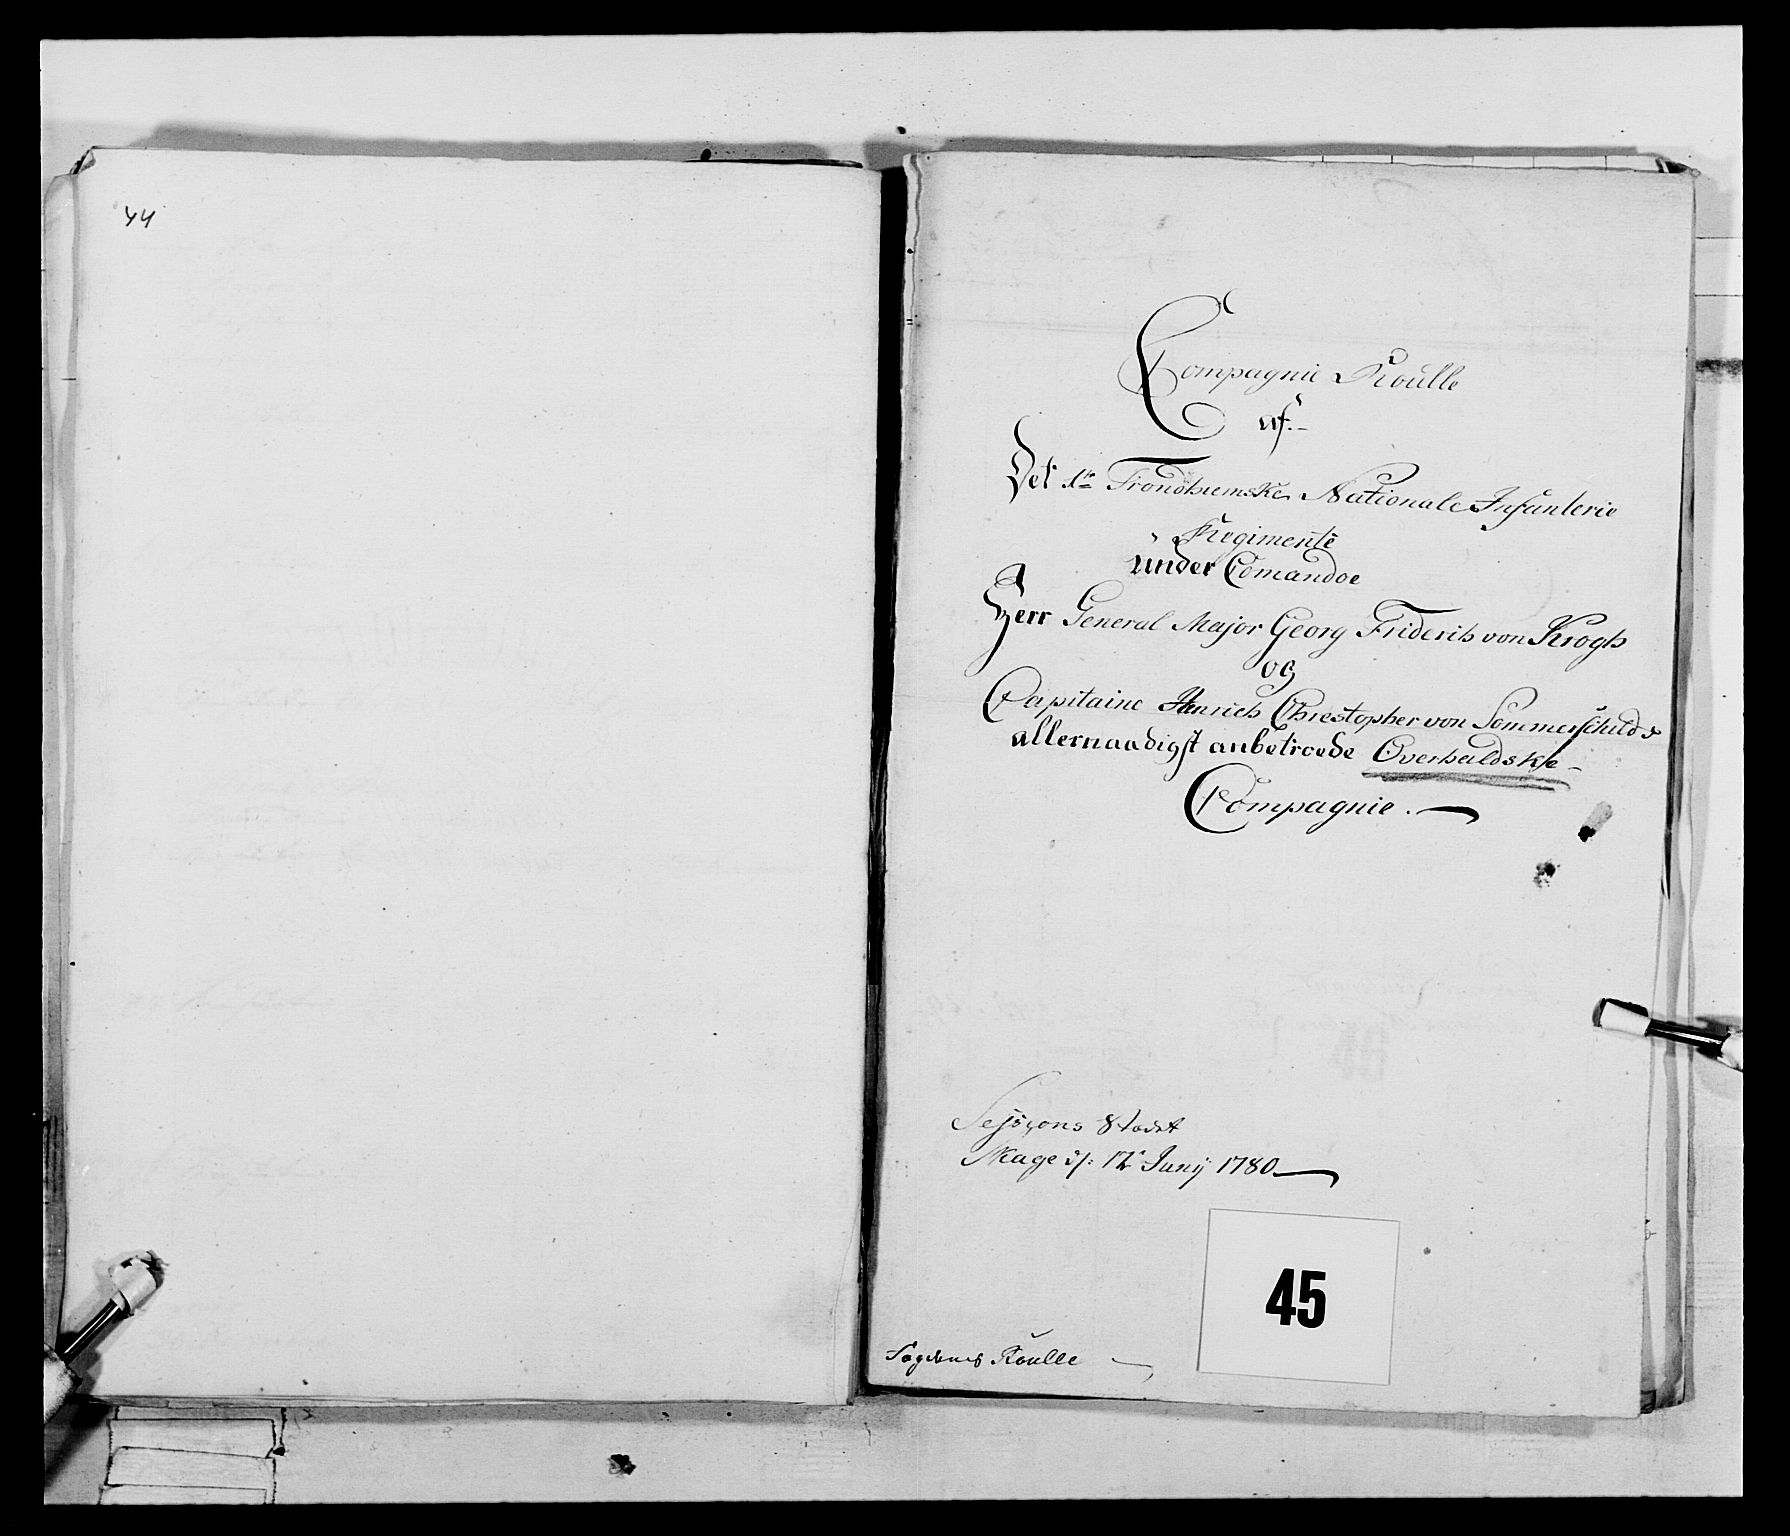 44
Compagnie Roulle
af.
Det 1te Trondhiemske Nationale Infanterie
Regimente
under Comandoe
Herr General Major Georg Friderich von Krogh
og
Capitaine Henrich Chrestopher von Sommerschilds
allernaadigst anbetroede Overhaldske
Compagnie.
Sessions Stædet
Skage d: 12t Junij 1780
45
Roulle